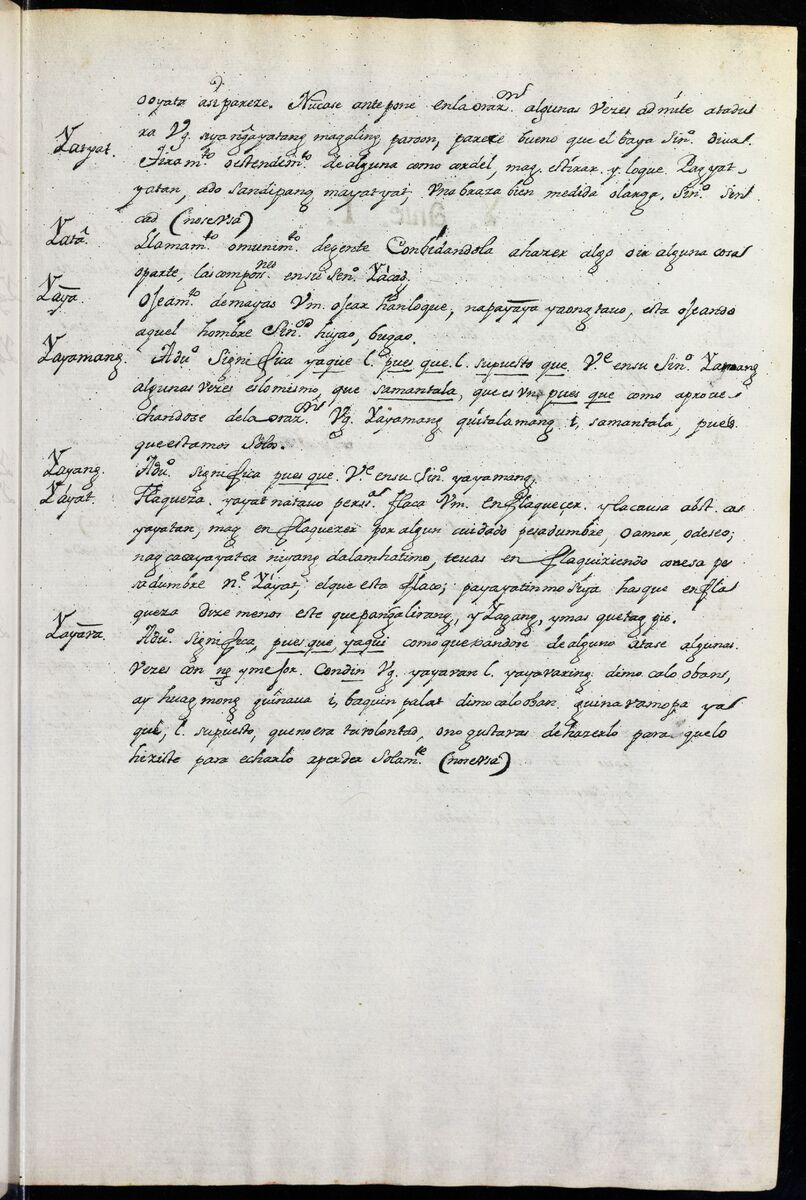 o oyata asi pareze. Nucase antepone enla oraz.on algunas vezes admite atadu
ra Vg. siyangayatang magaling paroon, pareze bueno que el baya Sin.o diva.
Yatyat. Atiram.to o estendim.to de alguna como cordel, mag. estirar. y loque. Pag yat
yatan, ado sandipang mayatyat, Vna braza bien medida o larga, Sin.o sin
cad (nose Vsa)
Yatâ. Llamam.to o munim.to de gente Conbidandola a hazer algo o ir alguna cosa
o parte, las compos.nes en su Sin.o Yácad.
Yaya. Oseam.to de mayas Vm. osear han loque, napayaya yaong tauo, esta oseando
aquel hombre Sin.os huyao, bugao.
Yayamang. Adu.o Significa yaque l. pues que. l. supuesto que. V.e en su Sin.o Yamang
algunas vezes es lo mismo, que samantala, que es Vn pues que como aproue
chandose dela oraz.on Vg. Yayamang quitalamang i, samantala, pues
que estamos Solos.
Yayang. Adu.o significa pues que. V.e en su Sin.o yayamang.
Yáyat. Flaqueza. yayat natauo pers.a flaca Vm. Enflaquecer. y la causa abst. ca
yayatan, mag enflaquezer por algun cuidado pesadumbre, o amor, o deseo;
nag cacayayatca niyang dalamhatimo, tevas enflaquiziendo con esa pe
sadumbre n.e Yáyat, el que esta flaco; payayatinmo siya haz que enfla
queza dize menos este que pangalirang, y Yagang, y mas que tag gis.
Yayâra. Adu.o significa, pues que, yaqui como quexandose de alguno atase algunas
Vezes con ng y mejor. Con din Vg. yayaran l. yayararing dimo calooban,
ay huag mong guinaua i, baquin palat dimo calooban, guinaramopa ya
que, l. supuesto, que no era tu volontad, o no gustavas de hazerlo para quelo
hiziste para echarlo a perder Solam.te (nose Vsa)